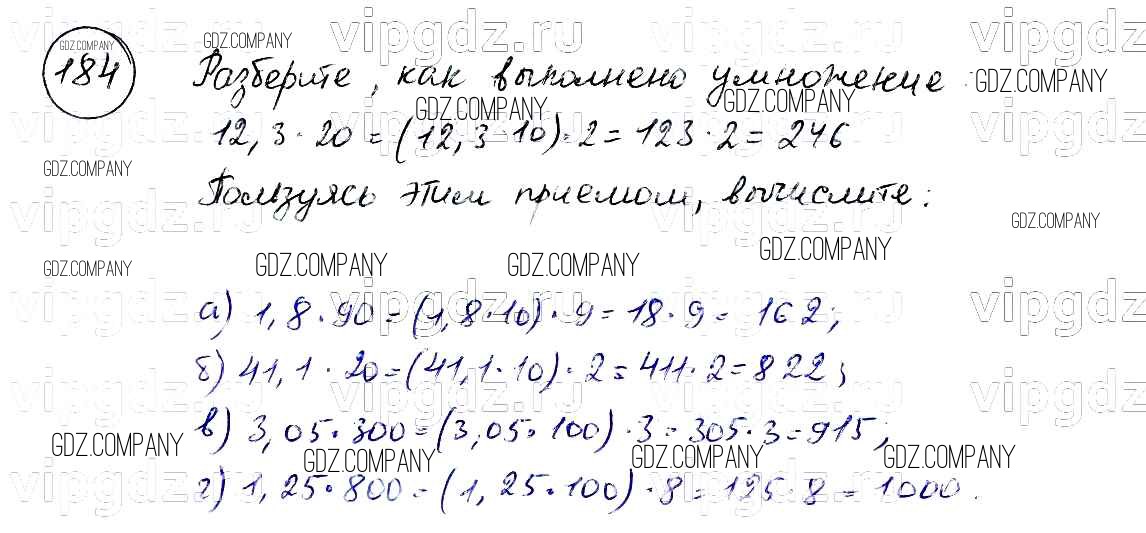 184
Разберите, как выполнено умножение:
12,3 · 20 = (12,3 · 10) · 2 = 123 · 2 = 246
Пользуясь этим приемом, вычислите:
а) 1,8 · 90 = (1,8 · 10) · 9 = 18 · 9 = 162;
б) 41,1 · 20 = (41,1 · 10) · 2 = 411 · 2 = 822;
в) 3,05 · 300 = (3,05 · 100) · 3 = 305 · 3 = 915;
г) 1,25 · 800 = (1,25 · 100) · 8 = 125 · 8 = 1000.
GDZ.COMPANY
vipgdz.ru